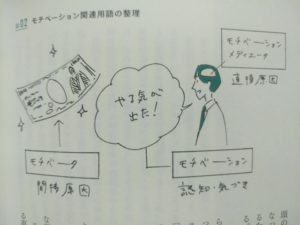 モチベーション関連用語の整理
モチベーション
メディエータ
直接原因
やる気が
出た！
モチベータ
間接原因
モチベーション
認知・気づき